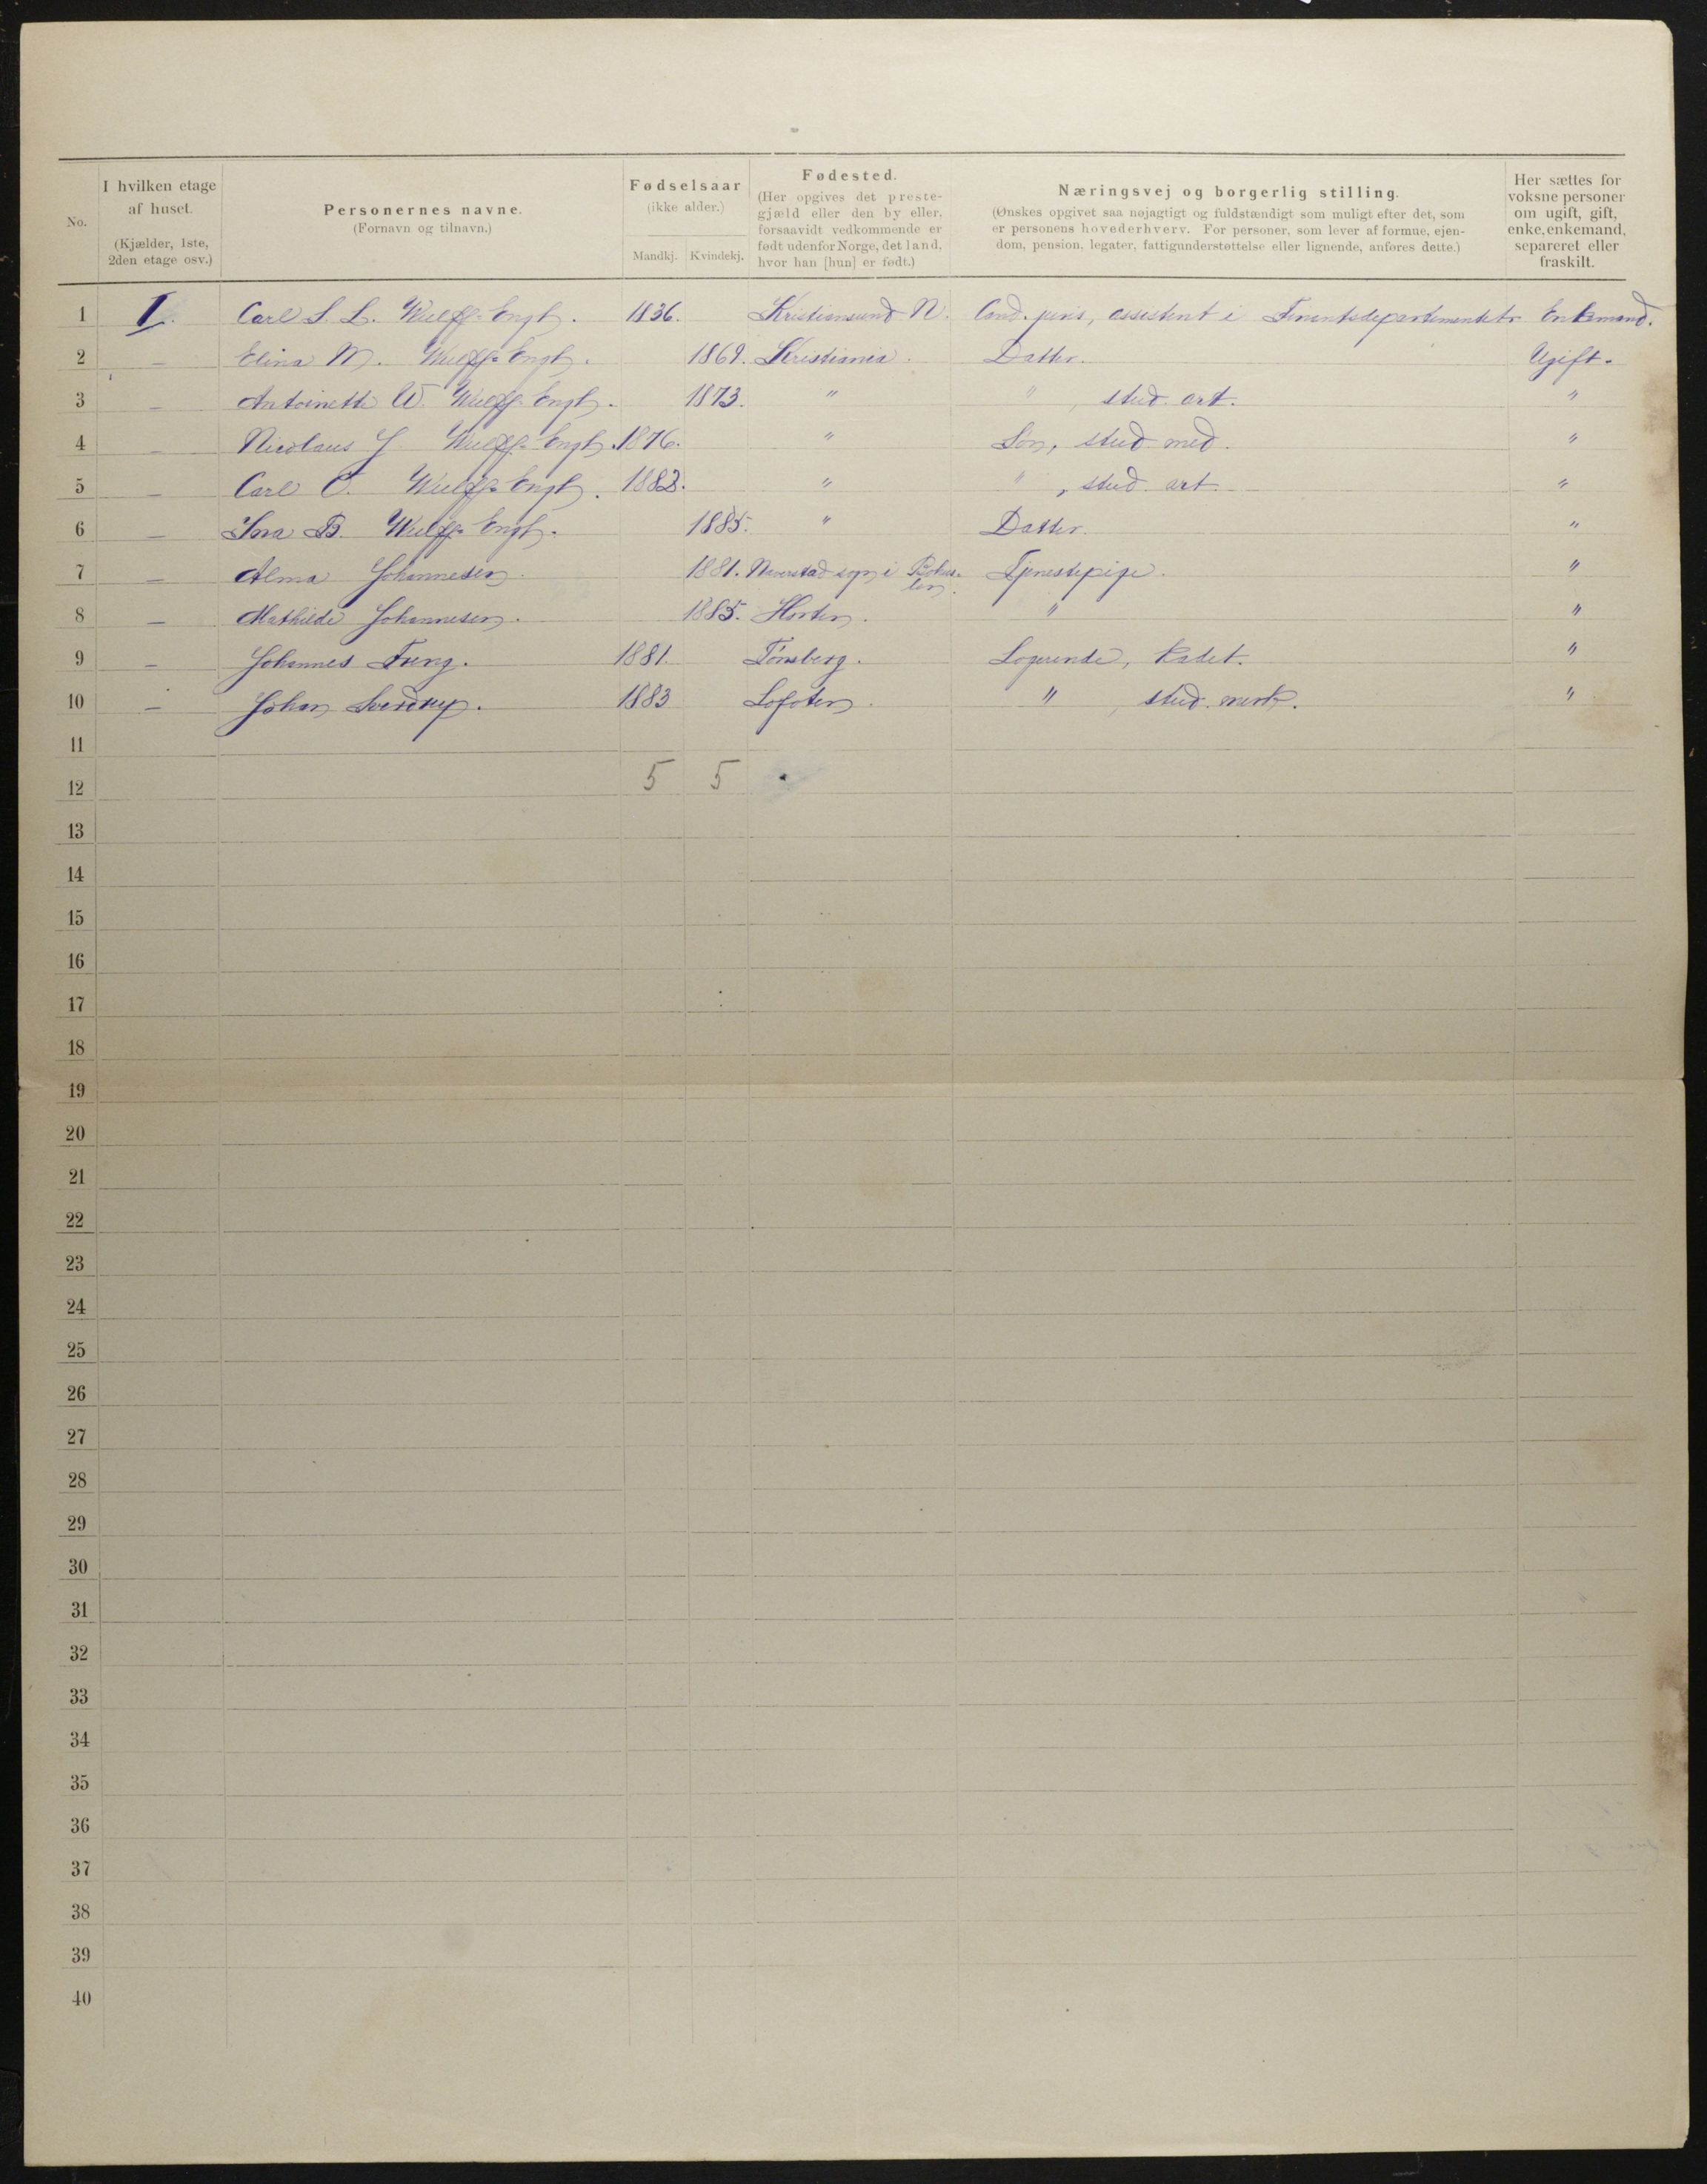 No.
I hvilken etage af huset. (Kjælder, 1ste, 2den etage osv.)
Personernes navne. (Fornavn og tilnavn.)
Fødselsaar (ikke alder.)
Mandkj. Kvindekj.
Fødested. (Her opgives det prestegjæld eller den by eller, forsaavidt vedkommende er født udenfor Norge, det land, hvor han [hun] er født.)
Næringsvej og borgerlig stilling. (Ønskes opgivet saa nøjagtigt og fuldstændigt som muligt efter det, som er personens hovederhverv. For personer, som lever af formue, ejendom, pension, legater, fattigunderstøttelse eller lignende, anføres dette.)
Her sættes for voksne personer om ugift, gift, enke, enkemand, separeret eller fraskilt.
1 I. Carl S. L. Wulff-Engh. 1836. Kristiansund N. Cand. juris, assistent i Enkemand.
2 — Elina M. Wulff-Engh. 1869. Kristiania. Datter. Ugift.
3 — Antoinette W. Wulff-Engh. 1873. " " , stud. art. "
4 — Nicolaus J. Wulff-Engh. 1876. " Søn, stud. med. "
5 — Carl C. Wulff-Engh. 1882. " " , stud. art. "
6 — B. Wulff-Engh. 1885. " Datter. "
7 — Alma Johannesen. 1881. Naverstad sogn i Bohuslen. Tjenestepige. "
8 — Mathilde Johannesen. 1885. Horten. " "
9 — Johannes Treng. 1881. Tønsberg. Logerende, kadet. "
10 — Johan Sverdrup. 1883 Lofoten. " , stud. merk. "
11
5 5
12
13
14
15
16
17
18
19
20
21
22
23
24
25
26
27
28
29
30
31
32
33
34
35
36
37
38
39
40